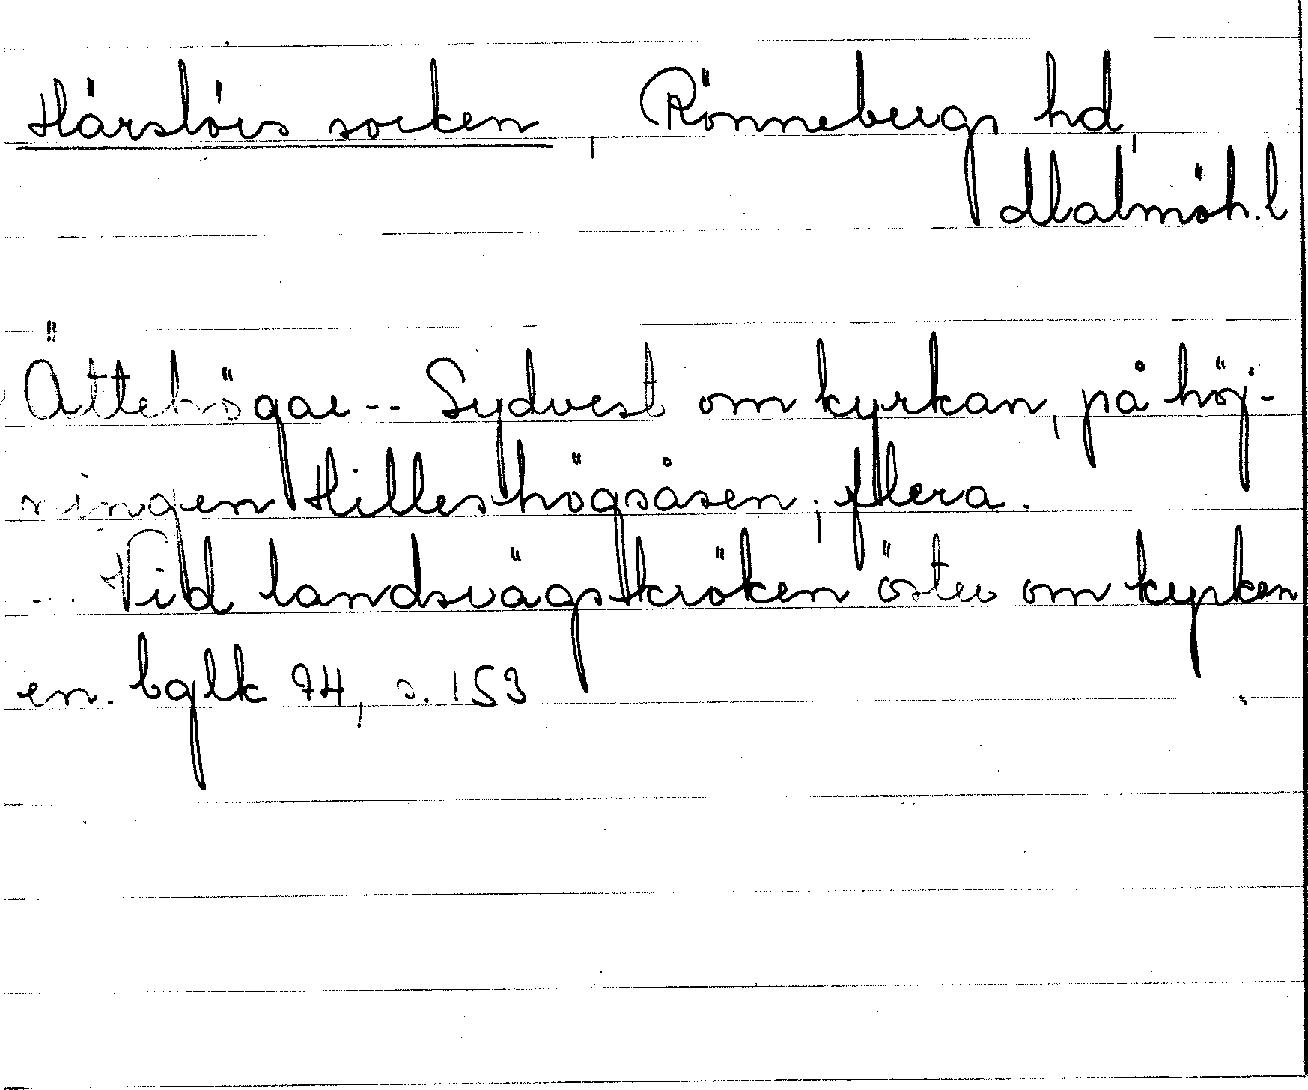 Härslövs socken, Rönnebergs hd,
Malmöh. l
Ättehögar -- Sydvest om kyrkan, på höj-
ningen Hilleshögsåsen; flera.
... Vid landsvägskröken öster om kyrkan
en. bglk 94, s. 153